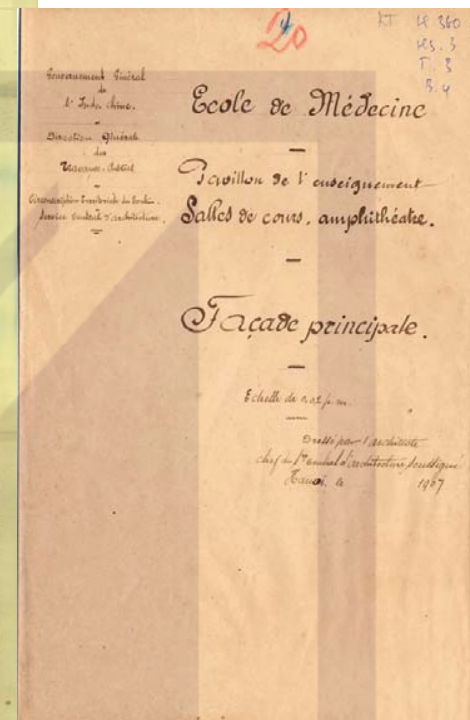 20
KT H 360
HS. 3
T. 3
B. 4
Gouvernement Général
de
l'Indo chine.
Direction Générale
des
Travaux Publics
Circonscription territoriale du Tonkin.
Service Central d'architecture.
Ecole de Médecine
Pavillon de l'enseignement
Salles de cours, amphithéatre.
Façade principale.
Echelle de 0.02 p. m.
Dressé par l'architecte
chef du Sce central d'architecture soussigné
Hanoï, le 1907